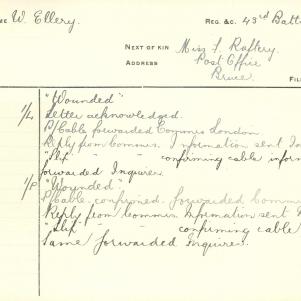 ME W. Ellery. REG. &C. 43rd Batt
NEXT OF KIN Miss F. Raftery.
ADDRESS Post Office
Bruce.
FIL
1/L "Wounded"
Letter acknowledged.
P/Cable forwarded Commrs London.
Reply from Commrs. Information sent In
"Slip" " confirming cable inform
forwarded Inquirer.
1/P "Wounded"
P/Cable confirmed. forwarded Commis
Reply from Commrs Information sent
"Slip" " confirming cable
Same forwarded Inquirer.